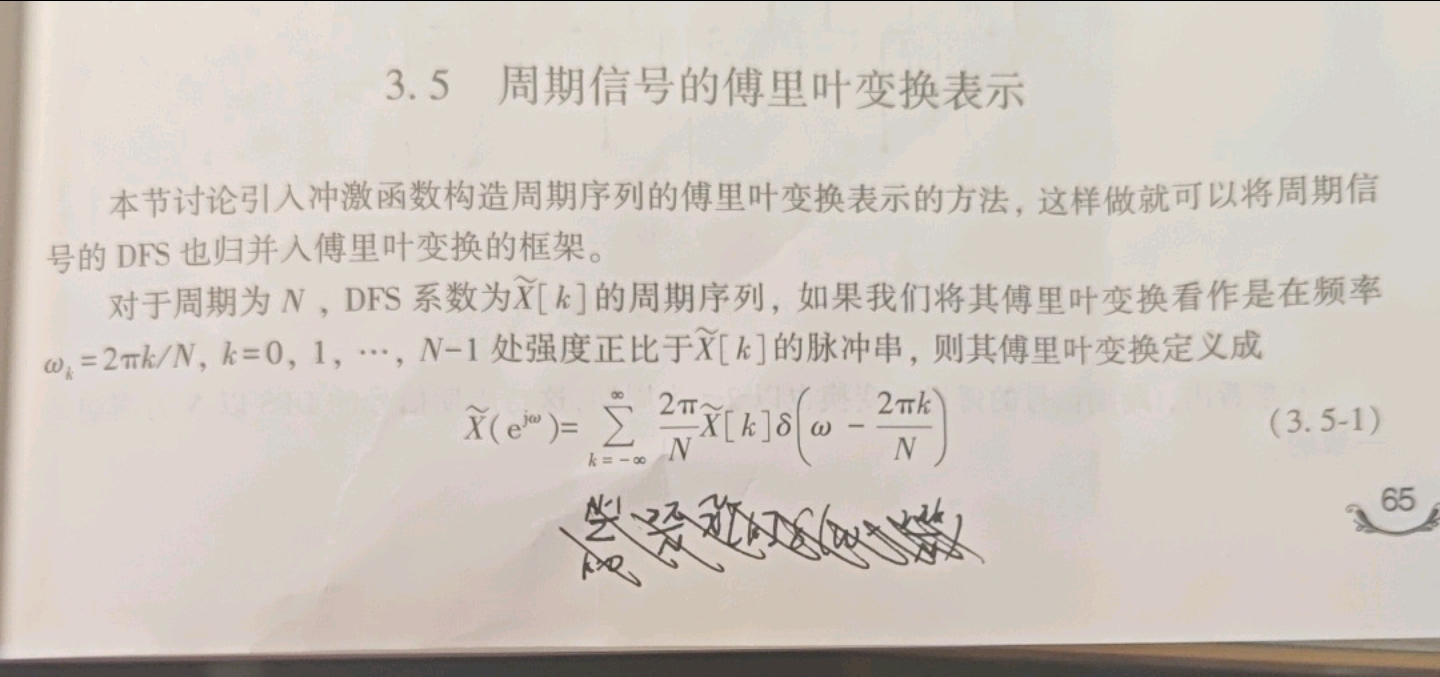 3.5 周期信号的傅里叶变换表示
本节讨论引入冲激函数构造周期序列的傅里叶变换表示的方法，这样做就可以将周期信
号的 DFS 也归并入傅里叶变换的框架。
对于周期为 N ，DFS 系数为X̃[k]的周期序列，如果我们将其傅里叶变换看作是在频率
ωₖ=2πk/N, k=0, 1, …, N-1 处强度正比于X̃[k]的脉冲串，则其傅里叶变换定义成
X̃(e^{jω})= ∑_{k=-∞}^{∞} \frac{2π}{N} X̃[k]δ(ω - \frac{2πk}{N}) (3.5-1)
65